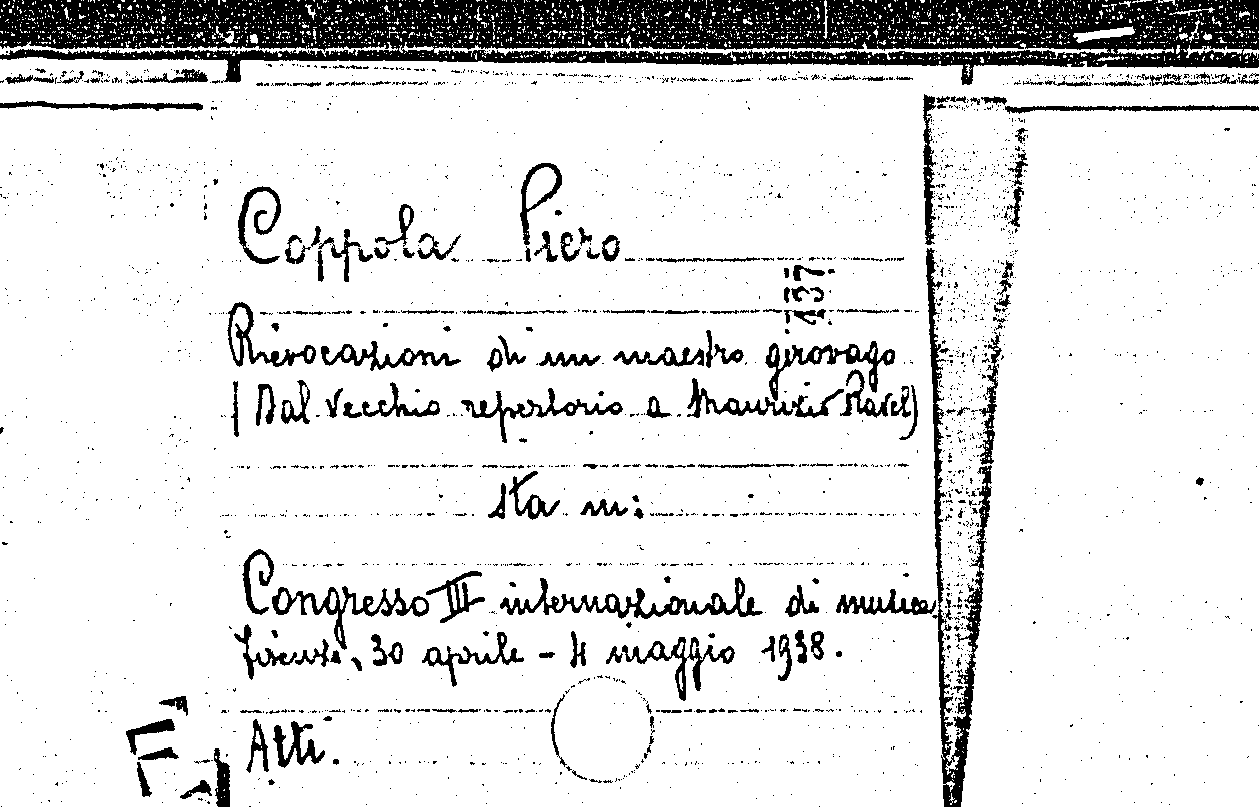 Coppola Piero
437
Rievocazioni di un maestro girovago
(Dal vecchio repertorio a Maurizio Ravel)
sta in:
Congresso III internazionale di musica
Firenze, 30 aprile - 4 maggio 1938.
Atti.